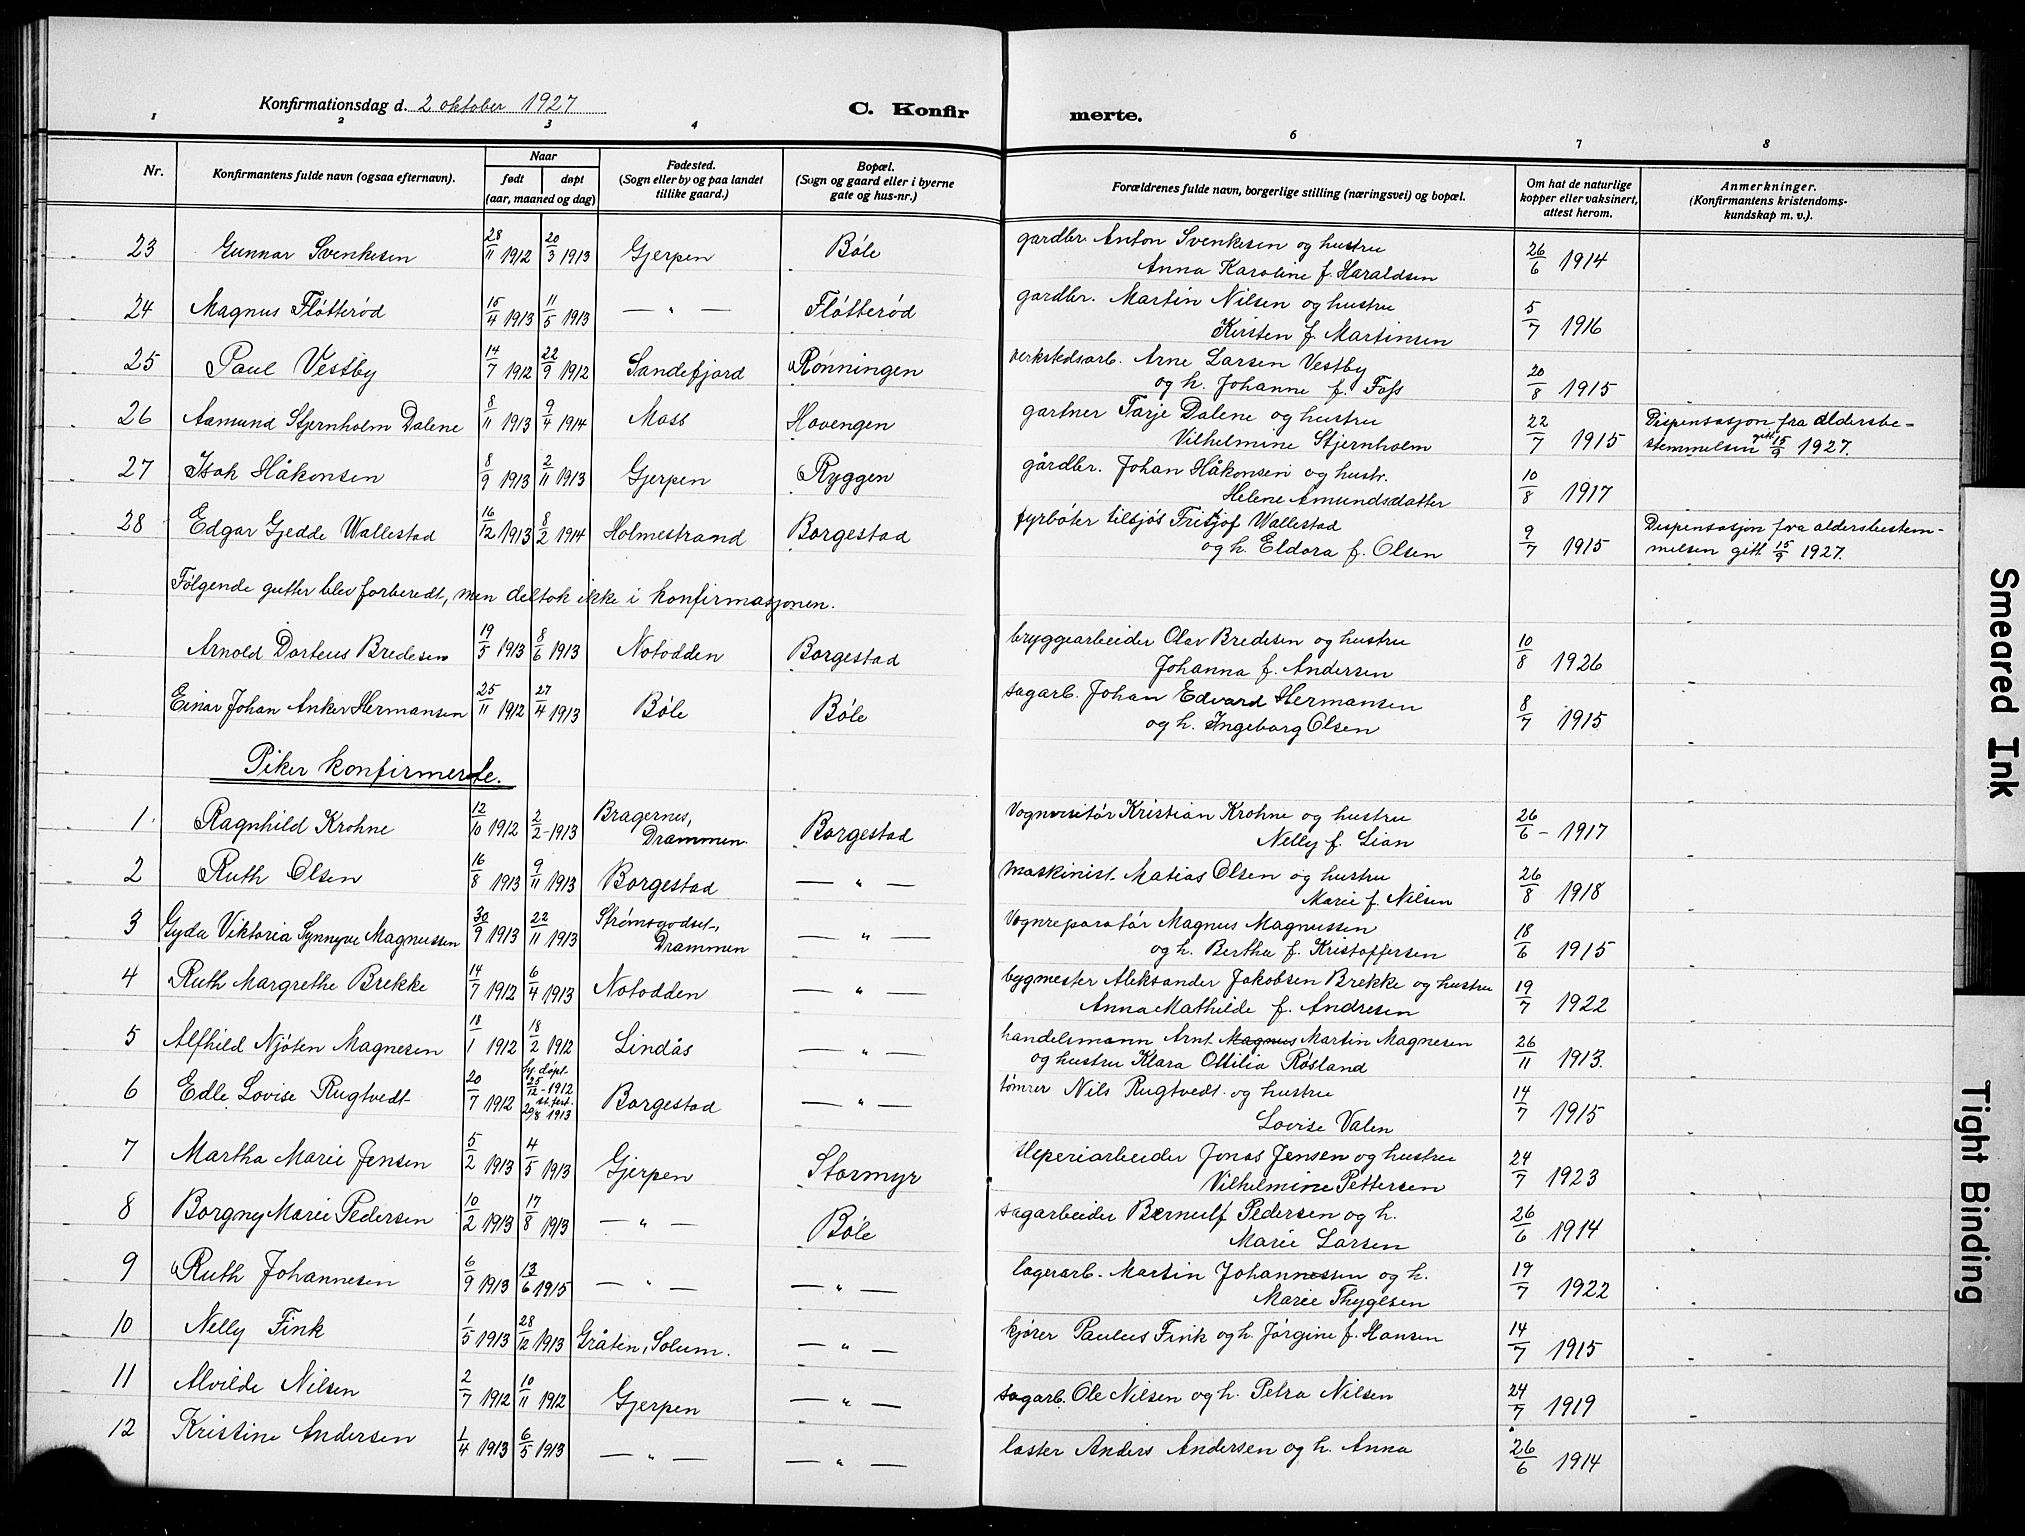 Konfirmationsdag d. 2 oktober 1927
C. Konfirmerte.
1 2 3 4 6 7 8
Nr. Konfirmantens fulde navn (ogsaa efternavn). Naar født døpt (aar, maaned og dag) Fødested. (Sogn eller by og paa landet tillike gaard.) Bopæl. (Sogn og gaard eller i byerne gate og hus-nr.) Forældrenes fulde navn, borgerlige stilling (næringsvei) og bopæl. Om hat de naturlige kopper eller vaksinert, attest herom. Anmerkninger. (Konfirmantens kristendoms-kundskap m. v.).
23 Gunnar Svenkesen 28/11 1912 20/3 1913 Gjerpen Bøle gardbr. Anton Svenkesen og hustru Anna Karoline f. Haraldsen 26/6 1914
24 Magnus Fløtterød 15/4 1913 11/5 1913 — " — Fløtterød gardbr. Martin Nilsen og hustru Kirsten f. Martinsen 5/7 1916
25 Paul Vestby 14/7 1912 22/9 1912 Sandefjord Rønningen verkstedsarb. Arne Larsen Vestby og h. Johanne f. Foss 20/8 1915
26 Aamund Stjernholm Dalene 8/11 1913 9/4 1914 Moss Hovengen gartner Tarje Dalene og hustru Vilhelmine Stjernholm 22/7 1915 Dispensasjon fra aldersbe-stemmelsen gitt 15/9 1927.
27 Isak Håkonsen 8/9 1913 2/11 1913 Gjerpen Ryggen gårdbr. Johan Håkonsen og hustr. Helene Amundsdatter 10/8 1917
28 Edgar Gjedde Wallestad 16/12 1913 8/2 1914 Holmestrand Borgestad fyrbøter tilsjøs Fritjof Wallestad og h. Eldora f. Olsen 9/7 1915 Dispensasjon fra aldersbestem-melsen gitt 15/9 1927.
Følgende gutter blev forberedt, men deltok ikke i konfirmasjonen.
Arnold Dorteus Bredesen 19/5 1913 8/6 1913 Notodden Borgestad bryggearbeider Olav Bredesen og hustru Johanna f. Andersen 10/8 1926
Einar Johan Anker Hermansen 25/11 1912 27/4 1913 Bøle Bøle sagarb. Johan Edvard Hermansen og h. Ingeborg Olsen 8/7 1915
Piker konfirmerte.
1 Ragnhild Krohne 12/10 1912 2/2-1913 Bragernes, Drammen. Borgestad Vognvisitør Kristian Krohne og hustru Nelly f. Lian 26/6 - 1917
2 Ruth Olsen 16/8 1913 9/11 1913 Borgestad — " — maskinist Matias Olsen og hustru Marie f. Nilsen 26/8 1918
3 Gyda Viktoria Synnyve Magnussen 30/9 1913 22/11 1913 Strømsgodset, Drammen — " — Vognreparatør Magnus Magnussen og h. Bertha f. Kristoffersen 18/6 1915
4 Ruth Margrethe Brekke 14/7 1912 6/4 1913 Notodden — " — bygmester Aleksander Jakobsen Brekke og hustru Anna Mathilde f. Andresen 19/7 1922
5 Alfhild Njøten Magnesen 18/1 1912 18/2 1912 Lindås — " — handelsmann Arnt Magnus Martin Magnesen og hustru Klara Ottilia Røsland 26/11 1913.
6 Edle Lovise Rugtvedt 20/7 1912 hj. døpt 25/12-1912 st. fest. 20/8 1913 Borgestad — " — tømrer Nils Rugtvedt og hustru Lovise Valen 14/7 1915
7 Martha Marie Jensen 5/2 1913 4/5 1913 Gjerpen Stormyr sleperiarbeider Jonas Jensen og hustru Vilhelmine Pettersen 24/7 1923
8 Borgny Marie Pedersen 10/2 1913 17/8 1913 — " — Bøle sagarbeider Bernulf Pedersen og h. Marie Larsen 26/6 1914
9 Ruth Johannesen 6/9 1913 13/6 1915 — " — — " — lagerarb. Martin Johannessen og h. Marie Thygesen 19/7 1922
10 Nelly Fink 1/5 1913 28/12 1913 Gråten, Solum. — " — kjører Paulus Fink og h. Jørgine f. Hansen 14/7 1915
11 Alvilde Nilsen 2/7 1912 10/11 1912 Gjerpen — " — sagarb. Ole Nilsen og h. Petra Nilsen 24/7 1919
12 Kristine Andersen 1/4 1913 6/5 1913 — " — — " — laster Anders Andersen og h. Anna 26/6 1914
Smeared Ink
Tight Binding